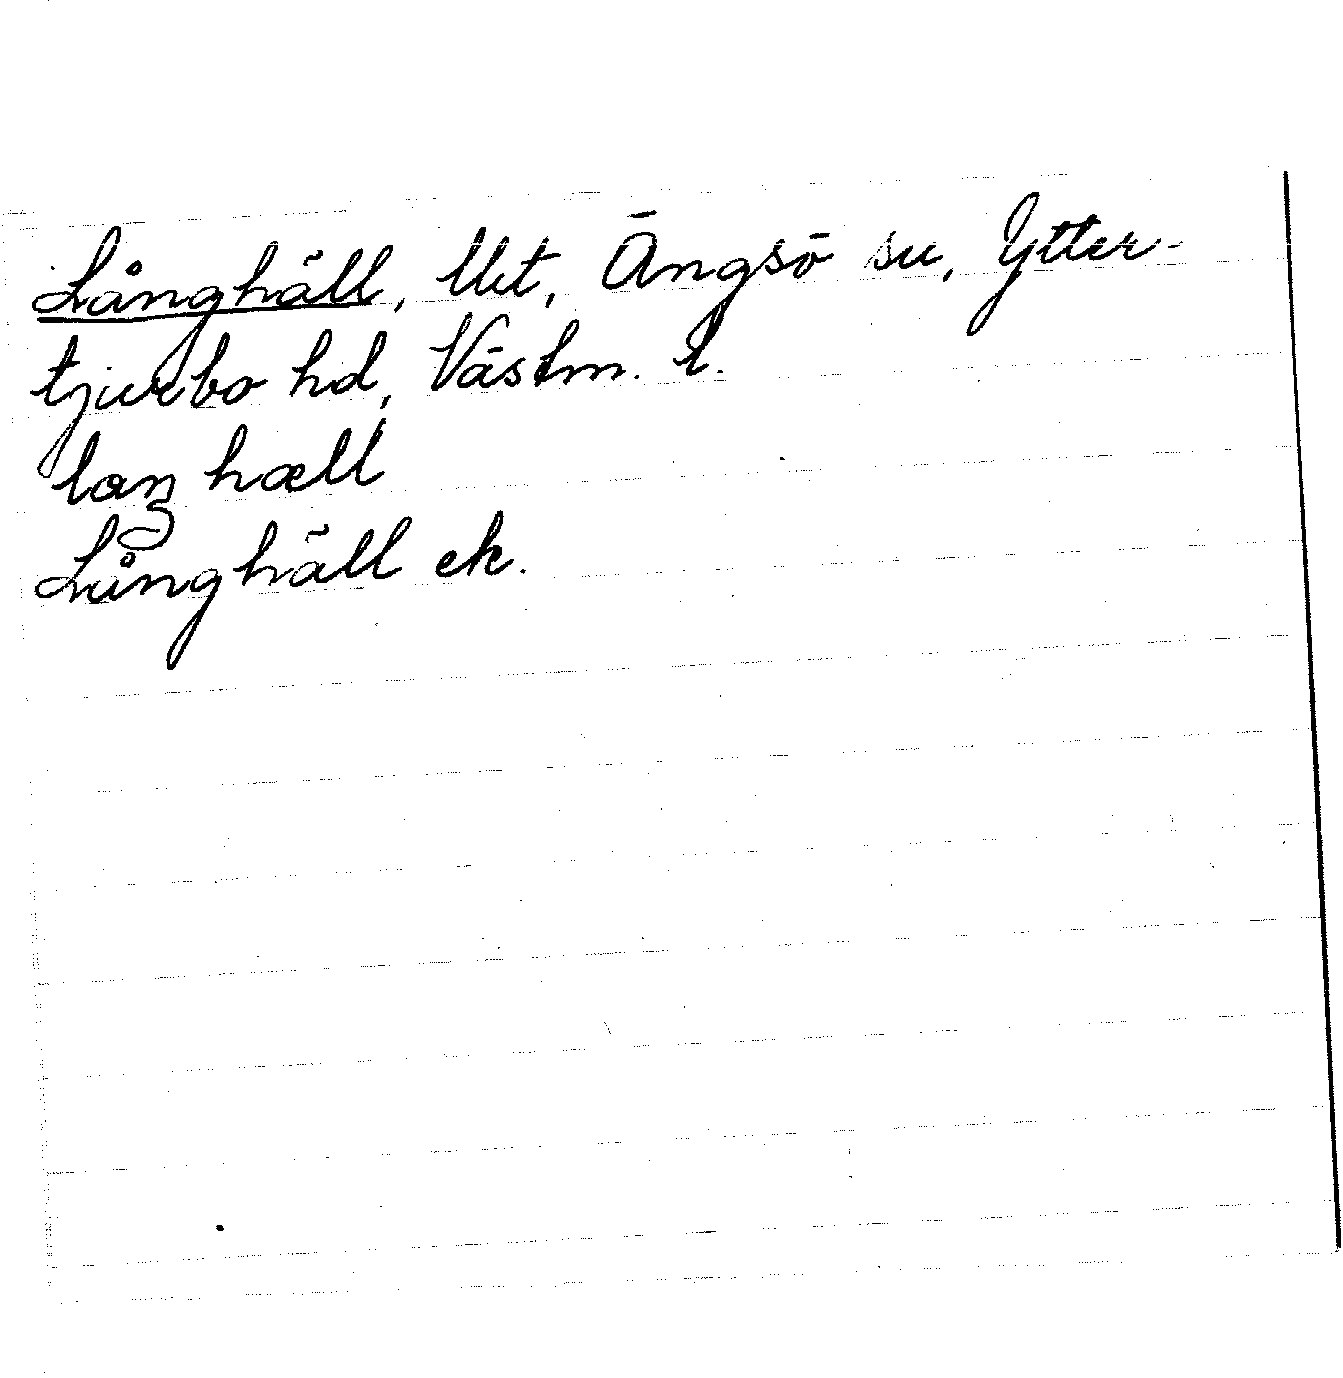 Långhäll, Utt, Ängsö sn, Ytter-
tjurbo hd, Västm. l.
laŋ hæll
Långhäll ek.